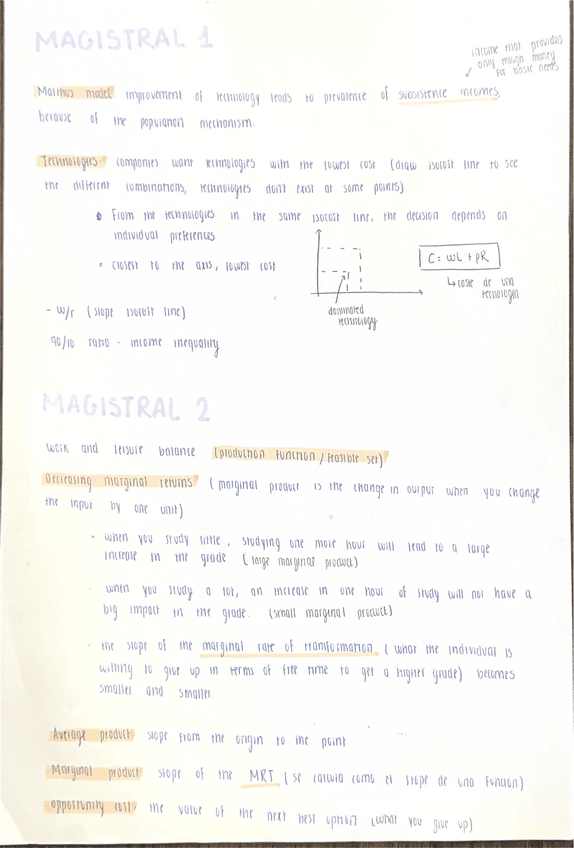 MAGISTRAL 1
income that provides
only enough money
for basic needs
Malthus model: improvement of technology leads to prevalence of subsistence incomes,
because of the population mechanism.
Technologies: companies want technologies with the lowest cost (draw isocost line to see
the different combinations, technologies don't exist at some points).
• From the technologies in the same isocost line, the decision depends on
individual preferences
• closest to the axis, lowest cost
C = wL + pR
↳ coste de una
tecnología
dominated
technology
- w/r (slope isocost line)
90/10 ratio - income inequality
MAGISTRAL 2
work and leisure balance (production function / feasible set)
Decreasing marginal returns (marginal product is the change in output when you change
the input by one unit)
• when you study little, studying one more hour will lead to a large
increase in the grade (large marginal product)
• when you study a lot, an increase in one hour of study will not have a
big impact in the grade. (small marginal product)
• the slope of the marginal rate of transformation (what the individual is
willing to give up in terms of free time to get a higher grade) becomes
smaller and smaller
Average product: slope from the origin to the point
Marginal product: slope of the MRT (se calcula como el slope de una función)
opportunity cost: the value of the next best option (what you give up)